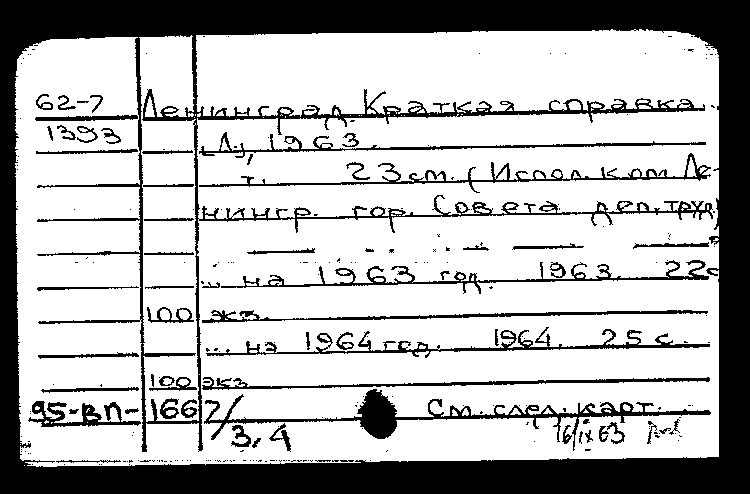 62-7 Ленинград. Краткая справка.
1393 [Л.], 1963.
т. 23 см. (Испол. ком. Ле-
нингр. гор. Совета деп. труд)
... на 1963 год. 1963. 22 с
100 экз.
... на 1964 год. 1964. 25 с.
100 экз
95-ВП-1667/3,4 См. след. карт.
16/IX 63